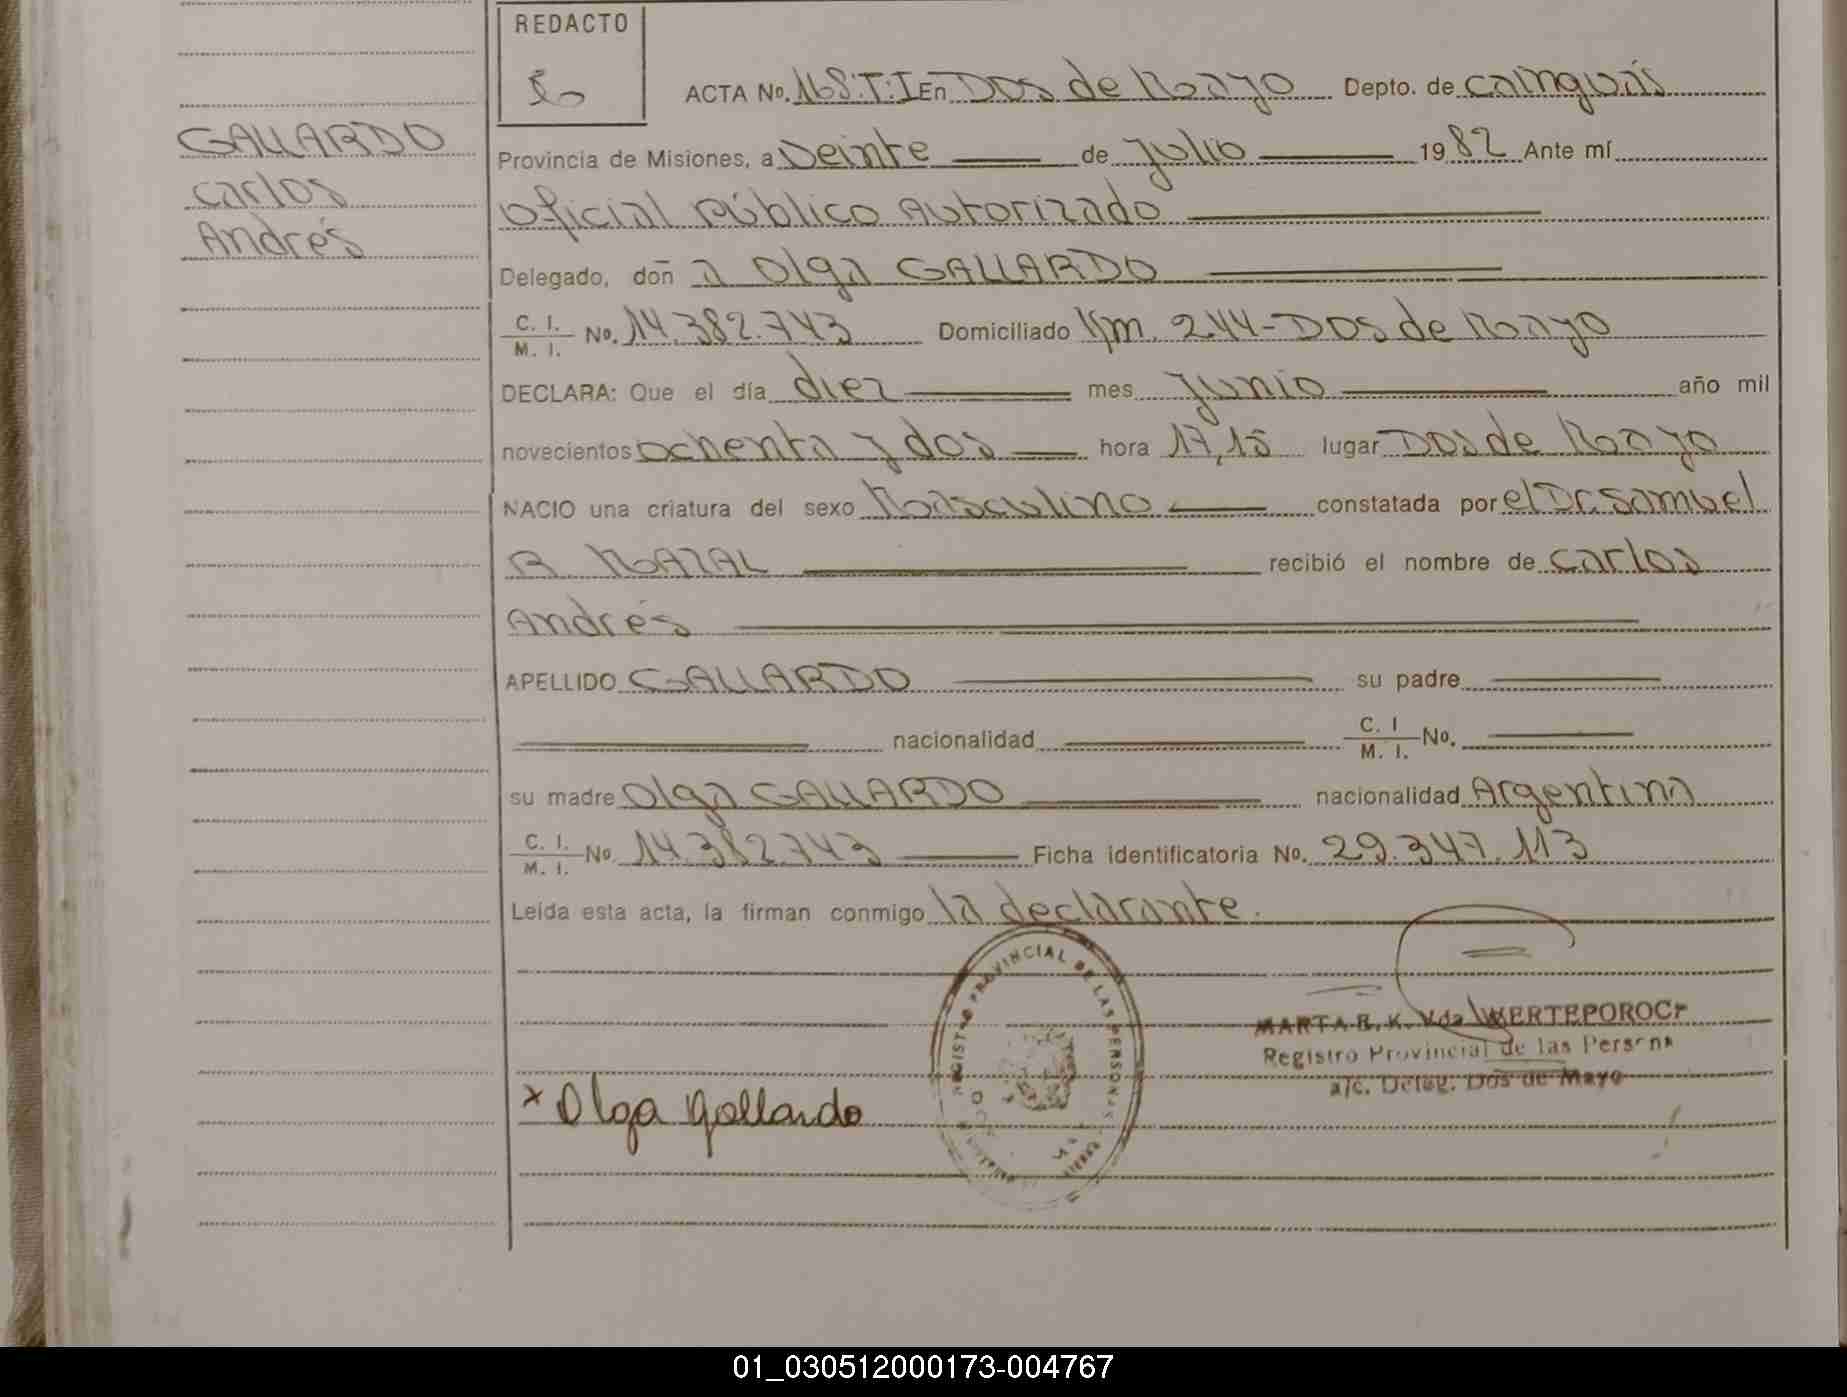 REDACTO
ACTA No. 168.T:I En Dos de Mayo Depto. de Cainguás
GALLARDO
Carlos
Andrés
Provincia de Misiones, a Veinte de Julio 1982 Ante mí
Oficial Público Autorizado
Delegado, doñ a Olga GALLARDO
C. I.
M. I. No. 14.382.743 Domiciliado Km. 244-Dos de Mayo
DECLARA: Que el día diez mes Junio año mil
novecientos ochenta y dos hora 17,15 lugar Dos de Mayo
NACIO una criatura del sexo Masculino constatada por el Dr. Samuel
R. MAZAL recibió el nombre de Carlos
Andrés
APELLIDO GALLARDO su padre
nacionalidad C. I
M. I. No.
su madre Olga GALLARDO nacionalidad Argentina
C. I.
M. I. No 14.382.743 Ficha identificatoria No. 29.347.113
Leída esta acta, la firman conmigo la declarante.
PROVINCIAL DE LAS PERSONAS
MARTA R. K. Vda
Registro Provincial de las
a/c. Deleg. Dos de Mayo
x Olga Gallardo
01_030512000173-004767